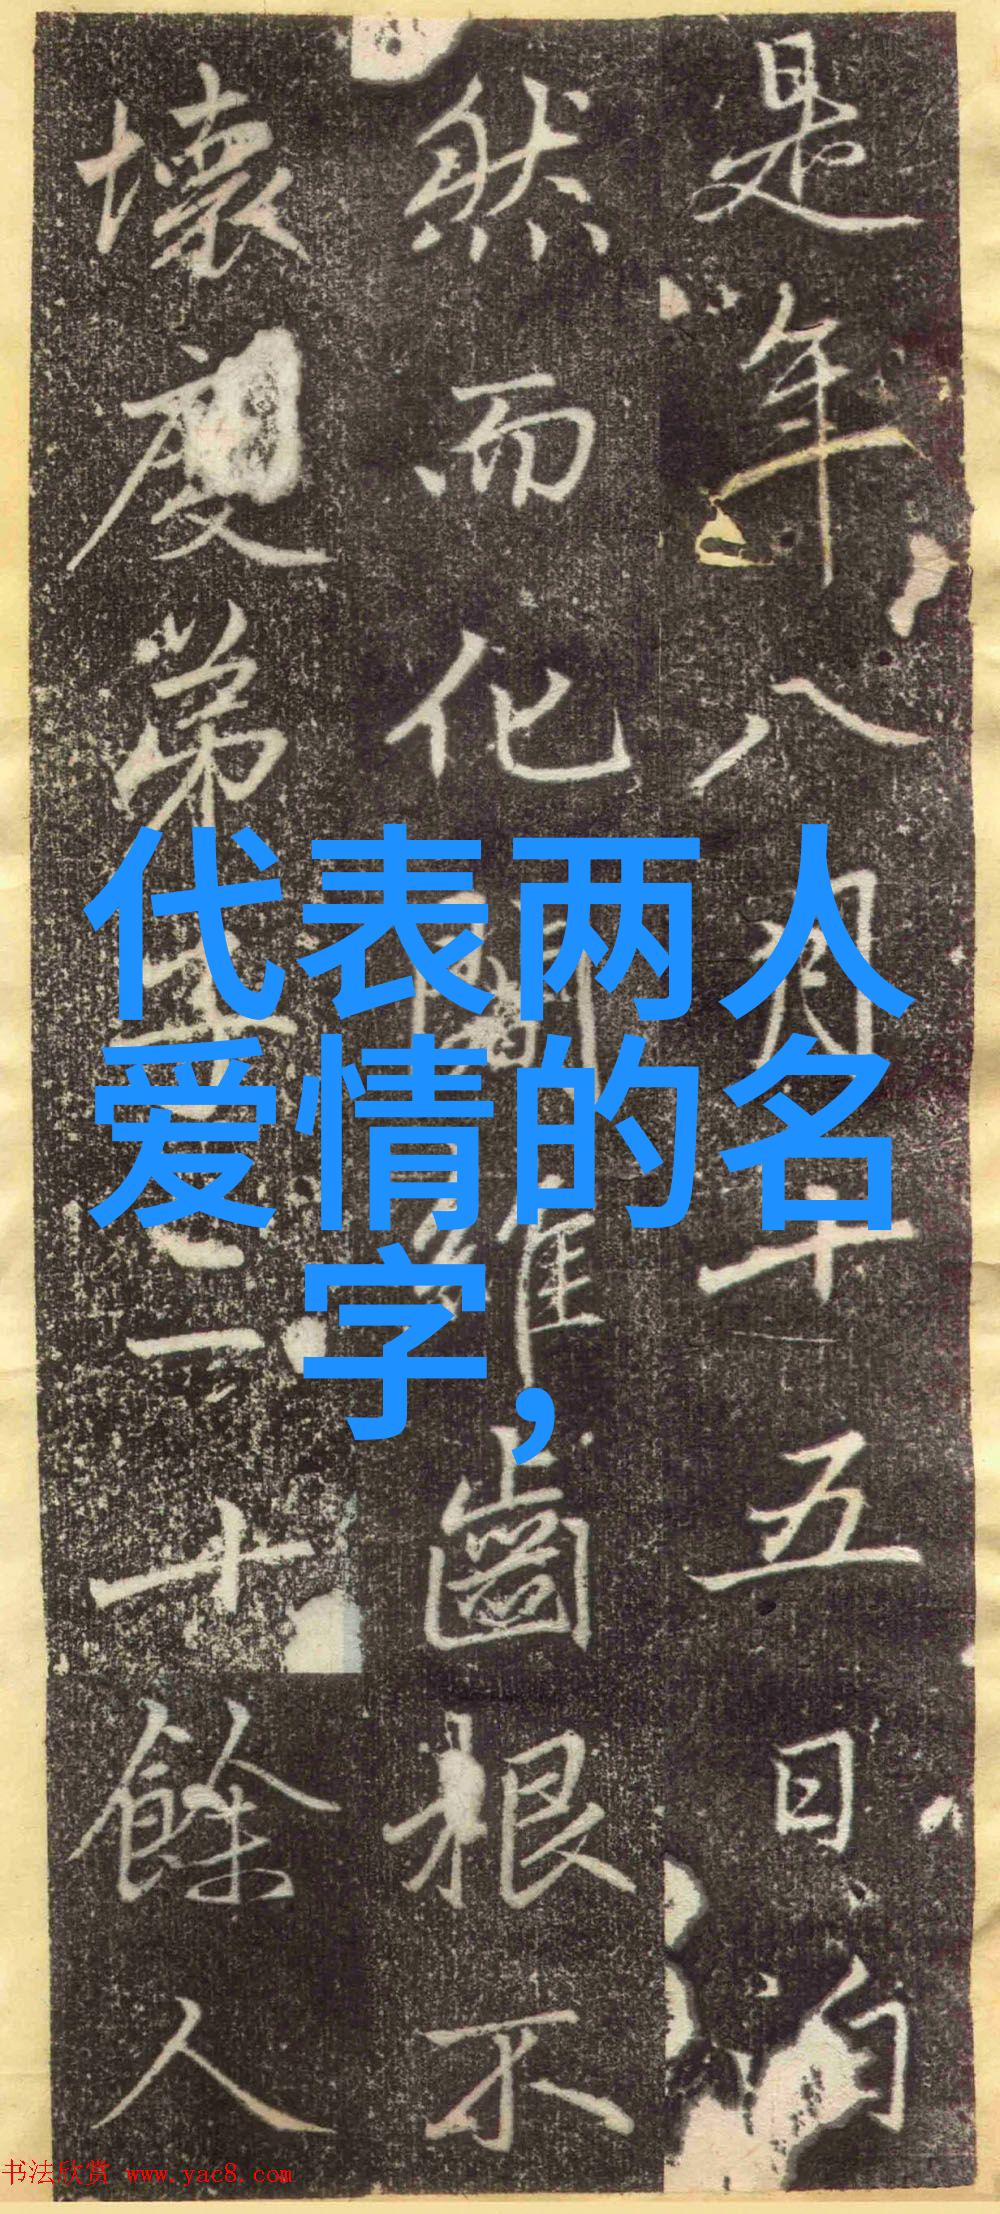 是年八月十五日
然而化
齒根不
壞度弟
二十餘人
代表两人
爱情的名
字，
书法欣赏 www.yac8.com